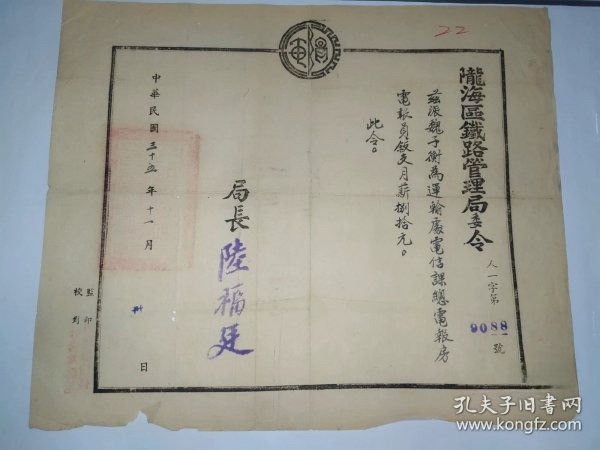 22
隴海區鐵路管理局委令
人一字第9088號
茲派魏子衡為運輸處電信課總電報房
電報員敘支月薪捌拾元。
此令。
局長 陸福廷
中華民國三十五年十一月卅日
監印
校對
孔夫子旧书网
www.kongfz.com